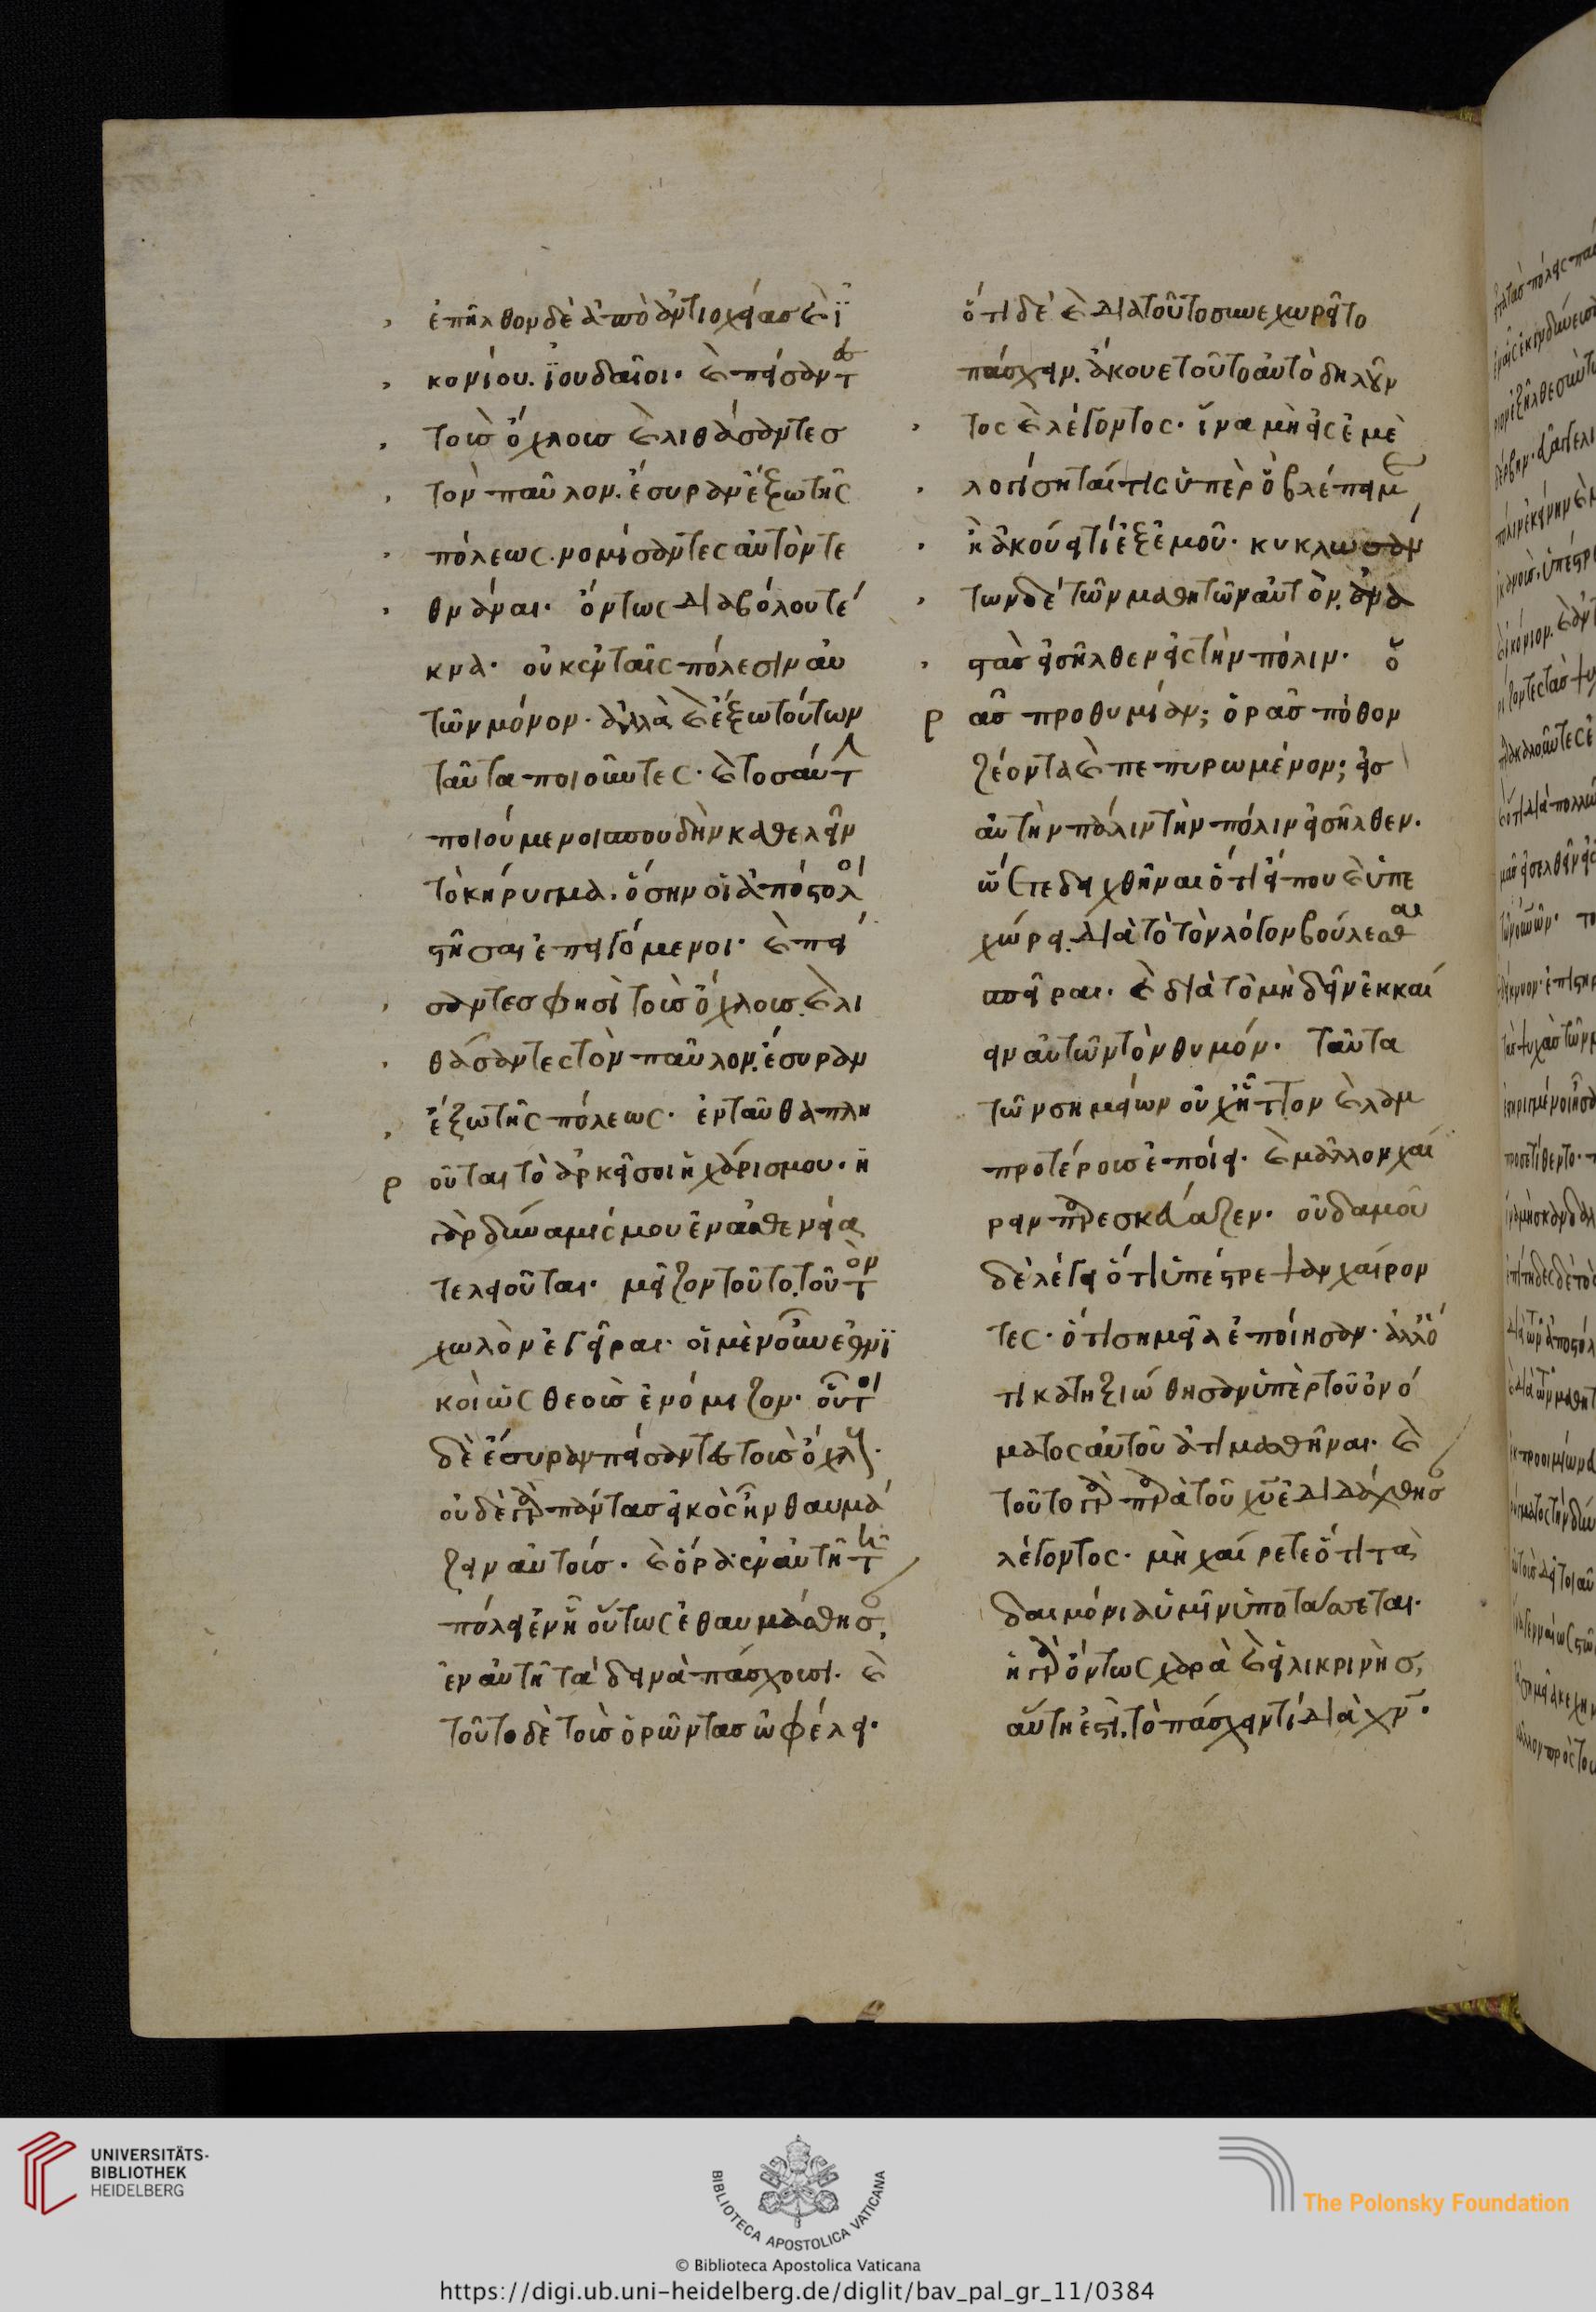 ἐπῆλθον δὲ ἀπὸ ἀντιοχείας καὶ ἰ
κονίου. ἰουδαῖοι· καὶ πείσαντες
τοὺς ὄχλους καὶ λιθάσαντες
τὸν παῦλον. ἔσυραν ἔξω τῆς
πόλεως. νομίσαντες αὐτὸν τε
θνάναι· ὄντως διαβόλου τέ
κνα· οὐκ ἐν ταῖς πόλεσιν αὐ
τῶν μόνον. ἀλλὰ καὶ ἔξω τούτων
ταῦτα ποιοῦντες· καὶ τοσαύτ
ποιούμενοι σπουδὴν καθελεῖν
τὸ κήρυγμα. ὅσην οἱ ἀπόστολοι
στῆσαι ἐπειγόμενοι· καὶ πεί
σαντες φησὶ τοὺς ὄχλους. καὶ λι
θάσαντες τὸν παῦλον. ἔσυραν
ἔξω τῆς πόλεως· ἐνταῦθα πλη
ροῦται τὸ ἀρκεῖ σοι ἡ χάρις μου· ἡ
γὰρ δύναμίς μου ἐν ἀσθενείᾳ
τελειοῦται· μεῖζον τοῦτο. τοῦ τὸν
χωλὸν ἐγεῖραι· οἱ μὲν οὖν ἐθνι
κοὶ ὡς θεοὺς ἐνόμιζον· οὗτοι
δὲ ἔσυραν πείσαντες τοὺς ὄχλους·
οὐδὲ γὰρ πάντας εἰκὸς ἦν θαυμά
ζειν αὐτούς· καὶ ὅρα· ἐν αὐτῇ τῇ
πόλει ἐν ᾗ οὕτως ἐθαυμάσθησαν,
ἐν αὐτῇ τὰ δεινὰ πάσχουσι· καὶ
τοῦτο δὲ τοὺς ὁρῶντας ὠφέλει·
ὅτι δὲ καὶ διὰ τοῦτο συνεχωρεῖτο
πάσχειν. ἄκουε τοῦτο αὐτὸ δηλοῦν
τος καὶ λέγοντος· ἵνα μὴ εἰς ἐμὲ
λογίσηταί τις ὑπὲρ ὃ βλέπει με
ἢ ἀκούει τί ἐξ ἐμοῦ· κυκλωσάν
των δὲ τῶν μαθητῶν αὐτόν. ἀνα
στὰς εἰσῆλθεν εἰς τὴν πόλιν· ὁ
ρᾶς προθυμίαν; ὁρᾶς πόθον
ζέοντα καὶ πεπυρωμένον; εἰς
αὐτὴν πάλιν τὴν πόλιν εἰσῆλθεν·
ὥστε δειχθῆναι ὅτι εἴ που καὶ ὑπε
χώρει. διὰ τὸ τὸν λόγον βούλεσθαι
σπεῖραι· καὶ διὰ τὸ μὴ δεῖν ἐκκαί
ειν αὐτῶν τὸν θυμόν· ταῦτα
τῶν σημείων οὐχ ἧττον καὶ λαμ
προτέρους ἐποίει· καὶ μᾶλλον χαί
ρειν παρεσκεύαζεν· οὐδαμοῦ
δὲ λέγει ὅτι ὑπέστρεψαν χαίρον
τες· ὅτι σημεῖα ἐποίησαν· ἀλλ' ὅ
τι κατηξιώθησαν ὑπὲρ τοῦ ὀνό
ματος αὐτοῦ ἀτιμασθῆναι· καὶ
τοῦτο γὰρ παρὰ τοῦ χυ ἐδιδάχθησαν
λέγοντος· μὴ χαίρετε ὅτι τὰ
δαιμόνια ὑμῖν ὑποτάσσεται·
ἡ γὰρ ὄντως χαρὰ καὶ εἰλικρινὴς,
αὕτη ἐστὶ. τὸ πάσχειν τί διὰ χν·
UNIVERSITÄTS-
BIBLIOTHEK
HEIDELBERG
BIBLIOTECA APOSTOLICA VATICANA
© Biblioteca Apostolica Vaticana
The Polonsky Foundation
https://digi.ub.uni-heidelberg.de/diglit/bav_pal_gr_11/0384